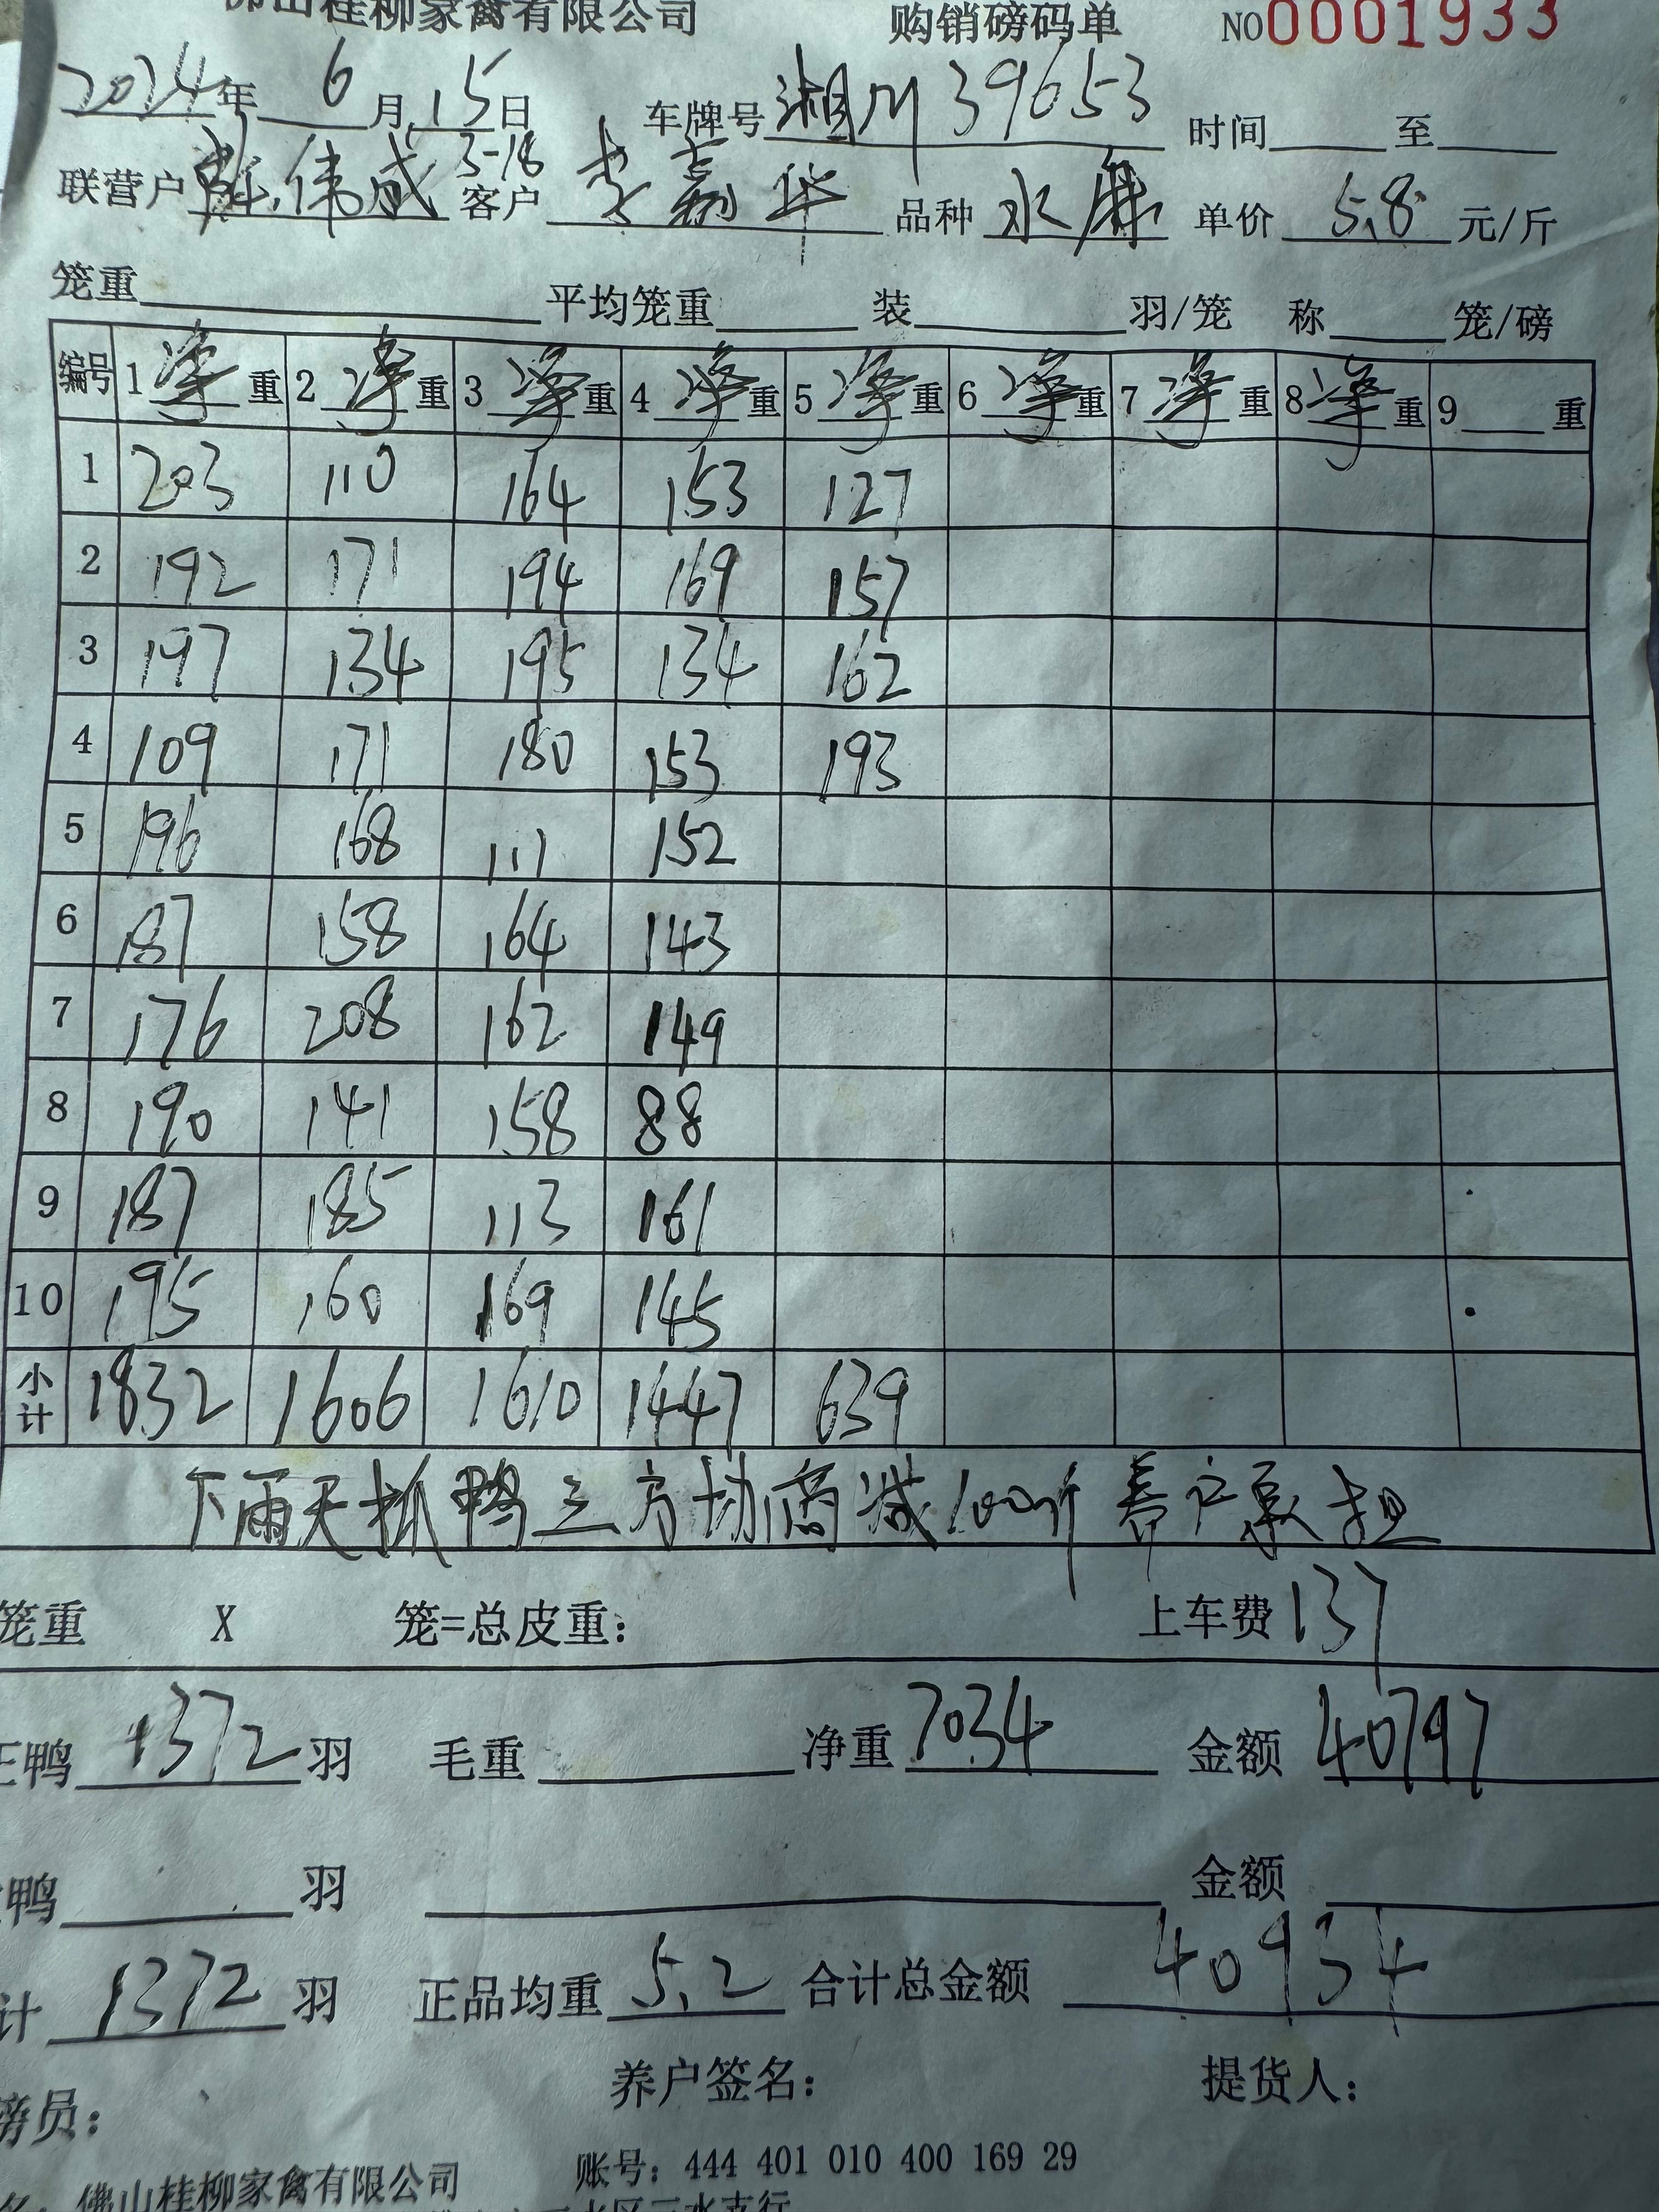 佛山桂柳家禽有限公司 购销磅码单 NO0001933
2024年 6月 15日 车牌号 湘M 39653 时间 至
联营户 伟成 3-18 客户 李嘉华 品种 水麻 单价 5.8 元/斤
笼重 平均笼重 装 羽/笼 称 笼/磅
编号 1净重 2净重 3净重 4净重 5净重 6净重 7净重 8净重 9 重
1 203 110 164 153 127
2 192 171 194 169 157
3 197 134 195 134 162
4 109 171 180 153 193
5 196 168 111 152
6 187 158 164 143
7 176 208 162 149
8 190 141 158 88
9 187 185 113 161
10 195 160 169 145
小计 1832 1606 1610 1447 639
下雨天抓鸭三方协商减100斤养户承担
笼重 X 笼=总皮重: 上车费 137
正鸭 1372 羽 毛重 净重 7034 金额 40797
鸭 羽 金额
计 1372 羽 正品均重 5.2 合计总金额 40934
磅员: 养户签名: 提货人:
名: 佛山桂柳家禽有限公司 账号: 444 401 010 400 169 29
水区三水支行